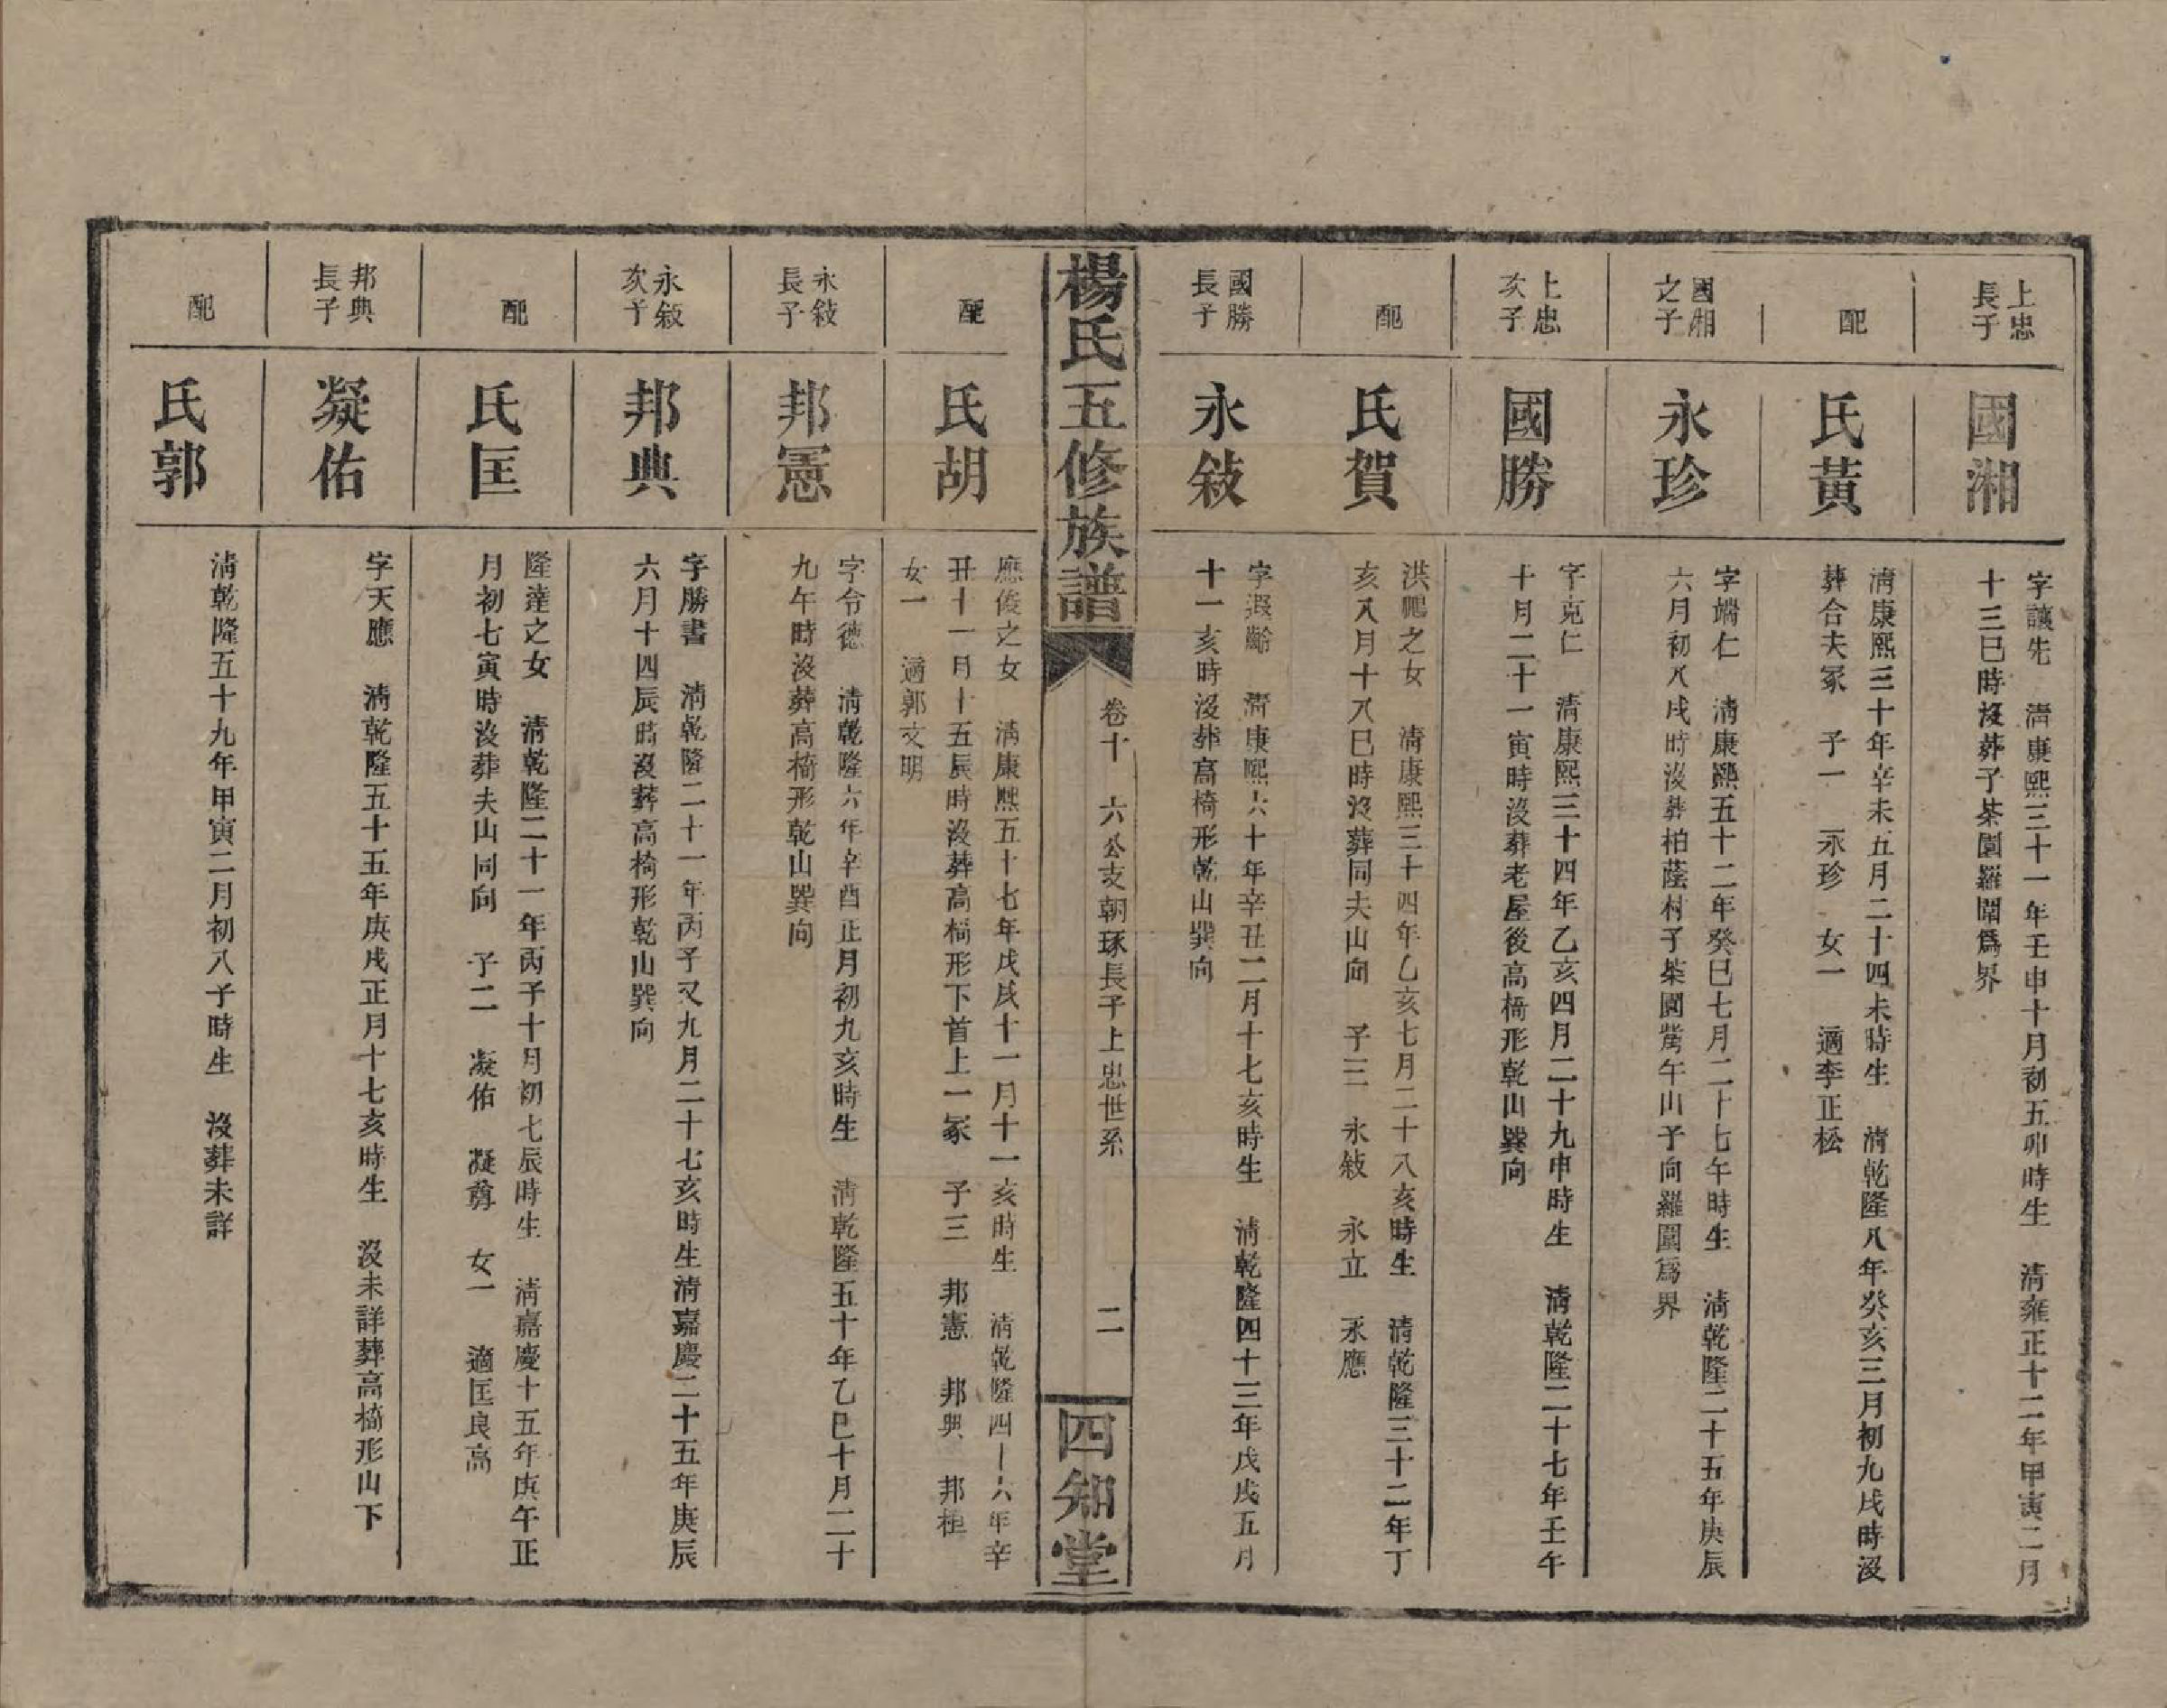 上忠
長子
國湘
字讓先　清康熙三十一年壬申十月初五卯時生　清雍正十二年甲寅二月
十三巳時沒葬子茶園羅闈爲界
配
氏黃
清康熙三十年辛未五月二十四未時生　清乾隆八年癸亥三月初九戌時沒
葬合夫冢　子一　永珍　女一　適李正松
國湘
之子
永珍
字端仁　清康熙五十二年癸巳七月二十七午時生　清乾隆二十五年庚辰
六月初八戌時沒葬柏蔭村子茶園嘴午山子向羅圍爲界
上忠
次子
國勝
字克仁　清康熙三十四年乙亥四月二十九申時生　清乾隆二十七年壬午
十月二十一寅時沒葬老屋後高椅形乾山巽向
配
氏賀
洪鵬之女　清康熙三十四年乙亥七月二十八亥時生　清乾隆三十二年丁
亥八月十八巳時沒葬同夫山向　子三　永敍　永立　永應
國勝
長子
永敍
字遐齡　清康熙六十年辛丑二月十七亥時生　清乾隆四十三年戊戌五月
十一亥時沒葬高椅形乾山巽向
楊氏五修族譜
卷十　六公支朝琢長子上忠世系
二
四知堂
配
氏胡
應俊之女　清康熙五十七年戊戌十一月十一亥時生　清乾隆四十六年辛
丑十一月十五辰時沒葬高椅形下首上一冢　子三　邦憲　邦典　邦植
女一　適郭文明
永敍
長子
邦憲
字令德　清乾隆六年辛酉正月初九亥時生　清乾隆五十年乙巳十月二十
九午時沒葬高椅形乾山巽向
永敍
次子
邦典
字勝書　清乾隆二十一年丙子又九月二十七亥時生清嘉慶二十五年庚辰
六月十四辰時沒葬高椅形乾山巽向
配
氏匡
隆達之女　清乾隆二十一年丙子十月初七辰時生　清嘉慶十五年庚午正
月初七寅時沒葬夫山同向　子二　凝佑　凝尊　女一　適匡良高
邦典
長子
凝佑
字天應　清乾隆五十五年庚戌正月十七亥時生　沒未詳葬高椅形山下
配
氏郭
清乾隆五十九年甲寅二月初八子時生　沒葬未詳